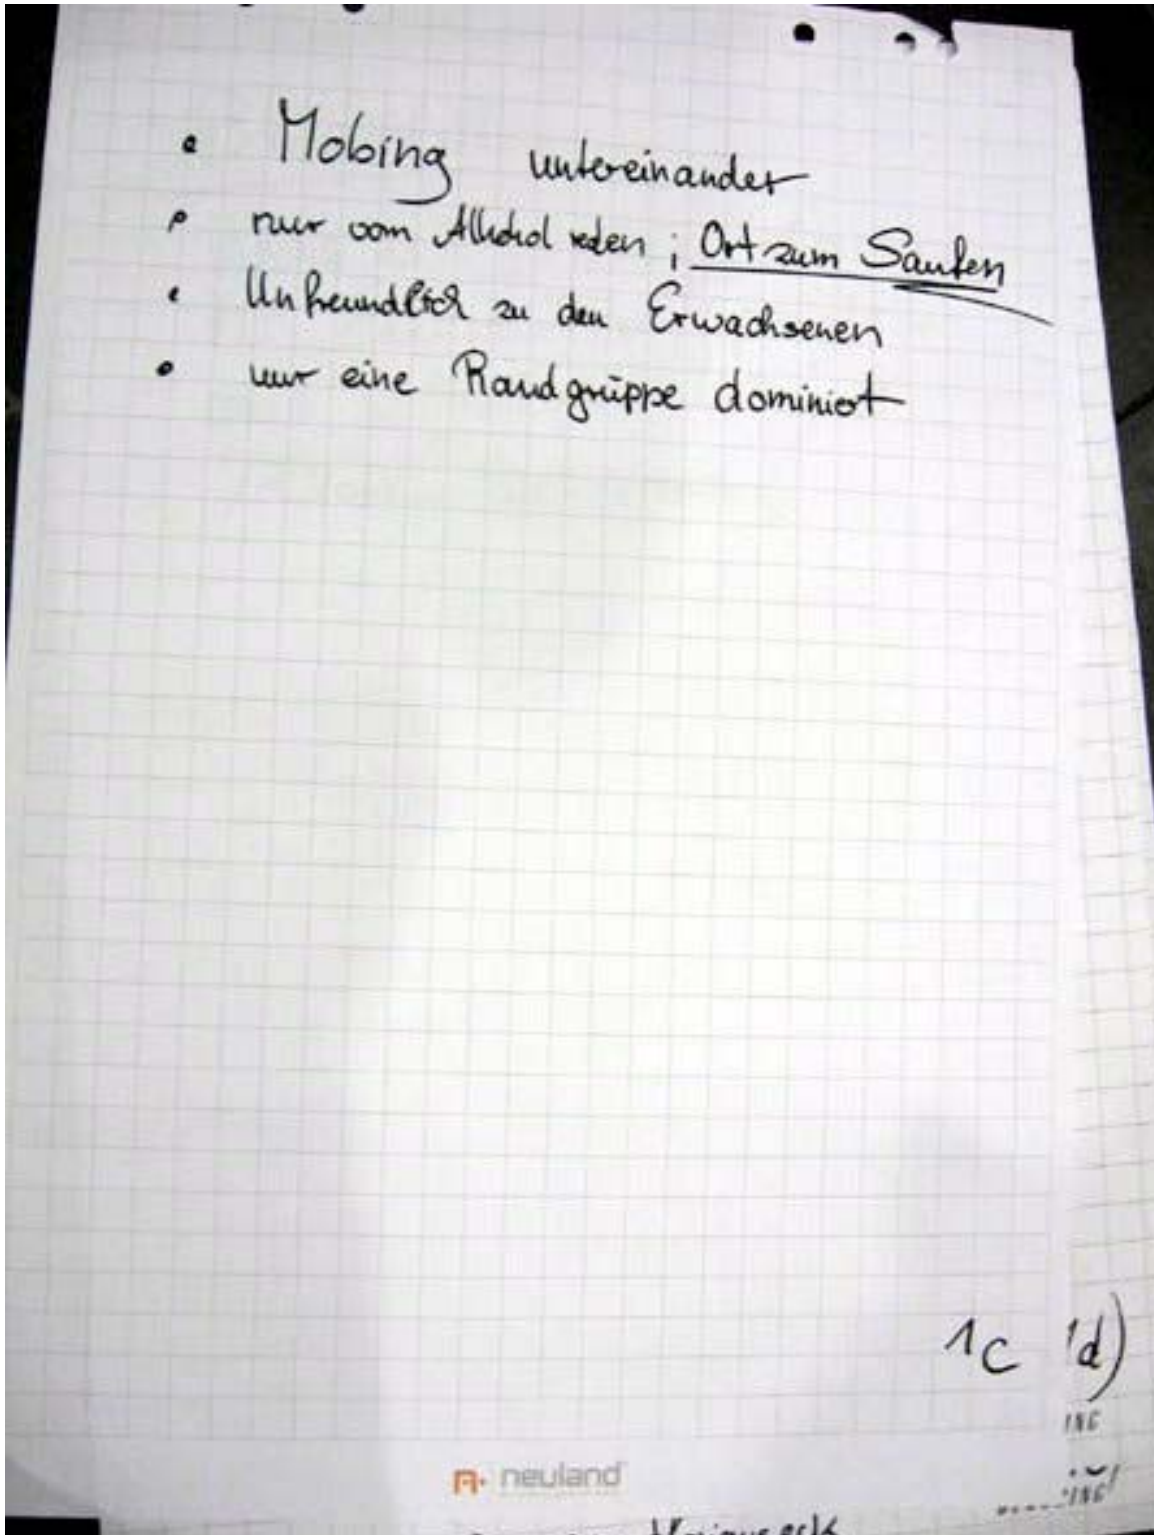 • Mobing untereinander
• nur vom Alkohol reden ; Ort zum Saufen
• Unfreundlich zu den Erwachsenen
• nur eine Randgruppe dominiert
1c 1d)
ING
neuland